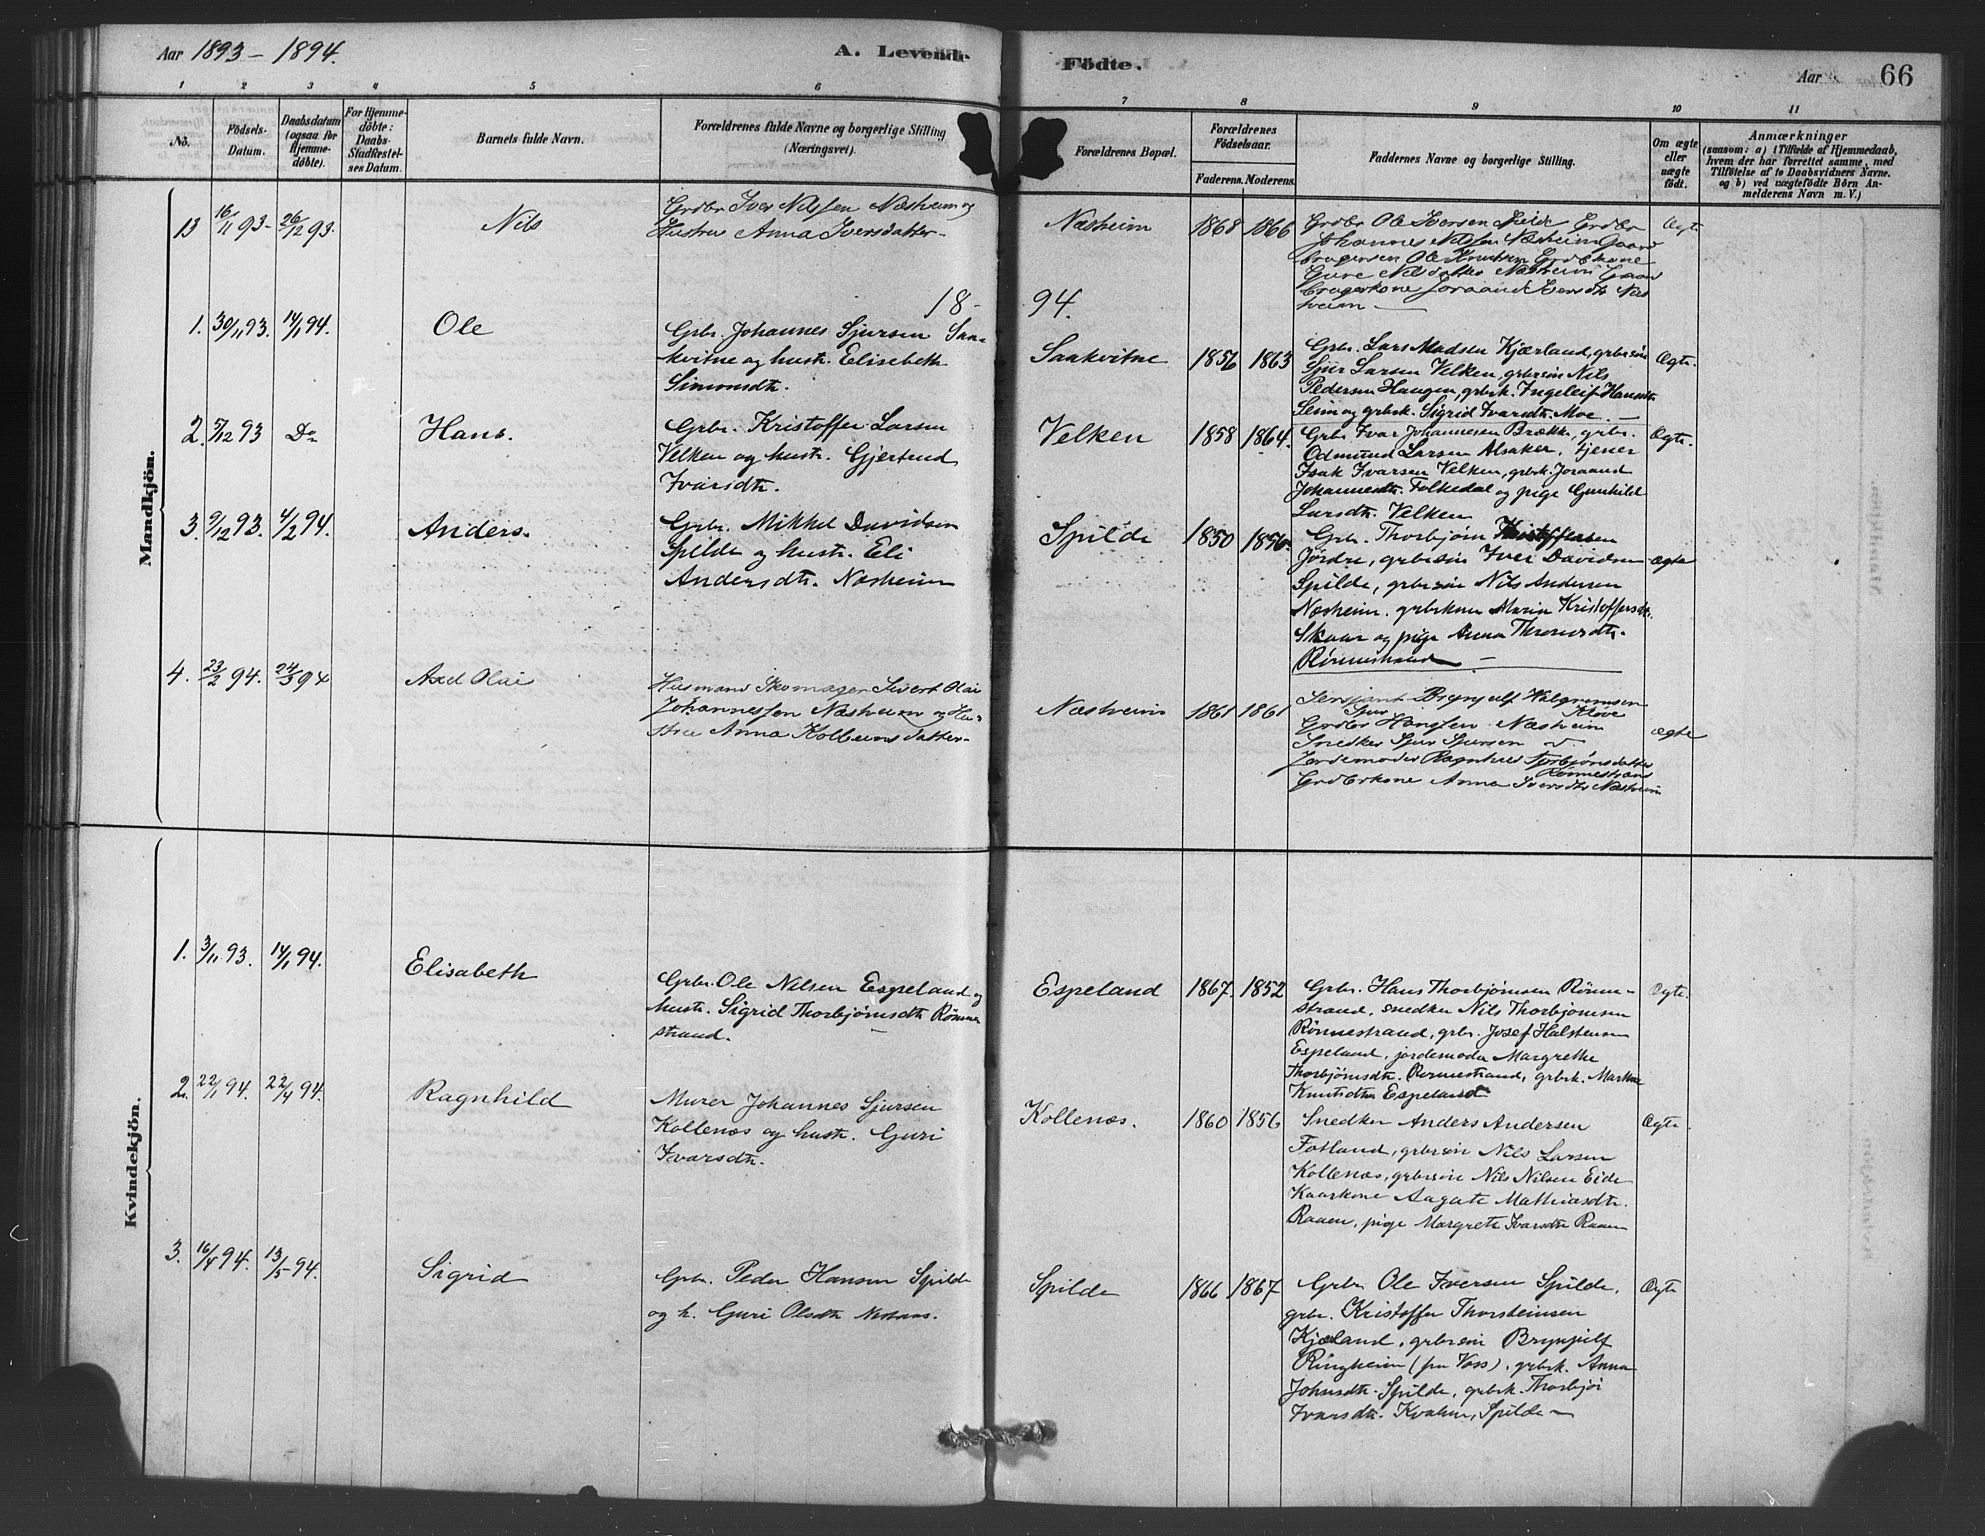 Aar 1893 - 1894.
A. Levende Födte.
Aar 66
1 2 3 4 5 6 7 8 9 10 11
No.
Födsels-
Datum.
Daabsdatum
(ogsaa for
Hjemme-
döbte).
For Hjemme-
döbte:
Daabs-
Stadfæstel-
ses Datum.
Barnets fulde Navn.
Forældrenes fulde Navne og borgerlige Stilling
(Næringsvei).
Forældrenes Bopæl.
Forældrenes
Födselsaar.
Faderens. Moderens.
Faddernes Navne og borgerlige Stilling.
Om ægte
eller
uægte
födt.
Anmærkninger
(saasom: a) i Tilfælde af Hjemmedaab,
hvem der har forrettet samme, med
Tilföielse af to Daabsvidners Navne.
og b) ved uægtefödte Börn An-
melderens Navn m. V.)
Mandkjön.
13 16/11 93- 26/12 93.
Nils
Grdbr Iver Nilssen Næsheim og
Hustru Anna Iversdatter-
Næsheim
1868 1866
Grdbr Ole Iversen Spilde Grdbr
Johannes Nilssen Næsheim Gaard
brugersøn Ole Knutsen Grdbkone
Gure Nilsdatter Næsheim Gaard
brugerkone Joraand Iversdtr Næs
heim
Ægte
18- 94.
1. 30/11 93. 14/1 94.
Ole
Grbr. Johannes Sjursen Saa-
kvitne og hustr. Elisebeth
Simonsdtr.
Saakvitne
1856 1863
Grbr. Lars Madsen Kjærland, grbrsøn
Sjur Larsen Velken, grbrsøn Nils
Pedersen Haugen, grbrk. Ingeleif Hansdtr.
Seim og grbrk. Sigrid Ivarsdtr. Moe.
Ægte.
2. 5/12 93 Do
Hans.
Grbr. Kristoffer Larsen
Velken og hustr. Gjertrud
Ivarsdtr.
Velken
1858 1864.
Grbr. Ivar Johannesen Brække, grbr.
Odmund Larsen Alsaker, tjener
Isak Ivarsen Velken, grbrk. Joraand
Johannesdtr. Folkedal og pige Gunhild
Larsdtr. Velken
Ægte.
3. 9/12 93. 4/2 94.
Anders.
Grbr. Mikkel Davidsen
Spilde og hustr. Eli
Andersdtr. Næsheim
Spilde
1850 1856.
Grbr. Thorbjørn Kristoffersen
Jørdre, grbrsøn Iver Davidsen
Spilde, grbrsøn Nils Andersen
Næsheim. grbrkone Maria Kristoffersdtr.
Skaar og pige Anna Thronsdtr.
Rønnestrand
ægte
4. 23/2 94. 24/3 94
Axel Olai
Husmand Skomager Sivert Olai
Johannessen Næsheim og Hu-
stru Anna Kolbeinsdatter-
Næsheim
1861 1861
Sersjant Brynjulf Walgrimsen
Kløve
Grdbr Sjur Hanssen Næsheim
Snedker Sjur Sjursen
Jordemoder Ragnhild Torbjønsdatter
Rønnestrand
Grdbrkone Anna Iversdtr Næsheim
ægte
Kvindekjön.
1. 3/11 93. 14/1 94.
Elisabeth
Grbr. Ole Nilsen Espeland og
hustr. Sigrid Thorbjørnsdtr. Rønne
strand.
Espeland
1867. 1852
Grbr. Hans Thorbjørnsen Rønne-
strand, snedker Nils Thorbjørnsen
Rønnestrand, grbr. Josef Halstensen
Espeland, jordemoder Margrethe
Thorbjørnsdtr. Rønnestrand, grbrk. Martha
Knutsdtr Espeland
Ægte.
2. 22/1 94. 22/4 94.
Ragnhild
Murer Johannes Sjursen
Kollenæs og hustr. Guri
Ivarsdtr.
Kollenæs.
1860 1856
Snedker Anders Andersen
Folland, grbrsøn Nils Larsen
Kollenæs, grbrsøn Nils Nilsen Eide
Kaarkone Aagate Mathiasdtr.
Raaen, pige Margrete Ivarsdtr Raaen
Ægte.
3. 16/4 94. 13/5 94.
Sigrid
Grbr. Peder Hansen Spilde
og h. Guri Olsdtr
Spilde
1866 1867
Grbr Ole Iversen Spilde,
grbr. Kristoffer Thorsteinsen
Kjærland, grbrsøn Brynjulf
Ringheim (fra Voss), grbrk. Anna
Johnsdtr. Spilde, grbrk. Thorbjør
Ivarsdtr. Spilde
Ægte